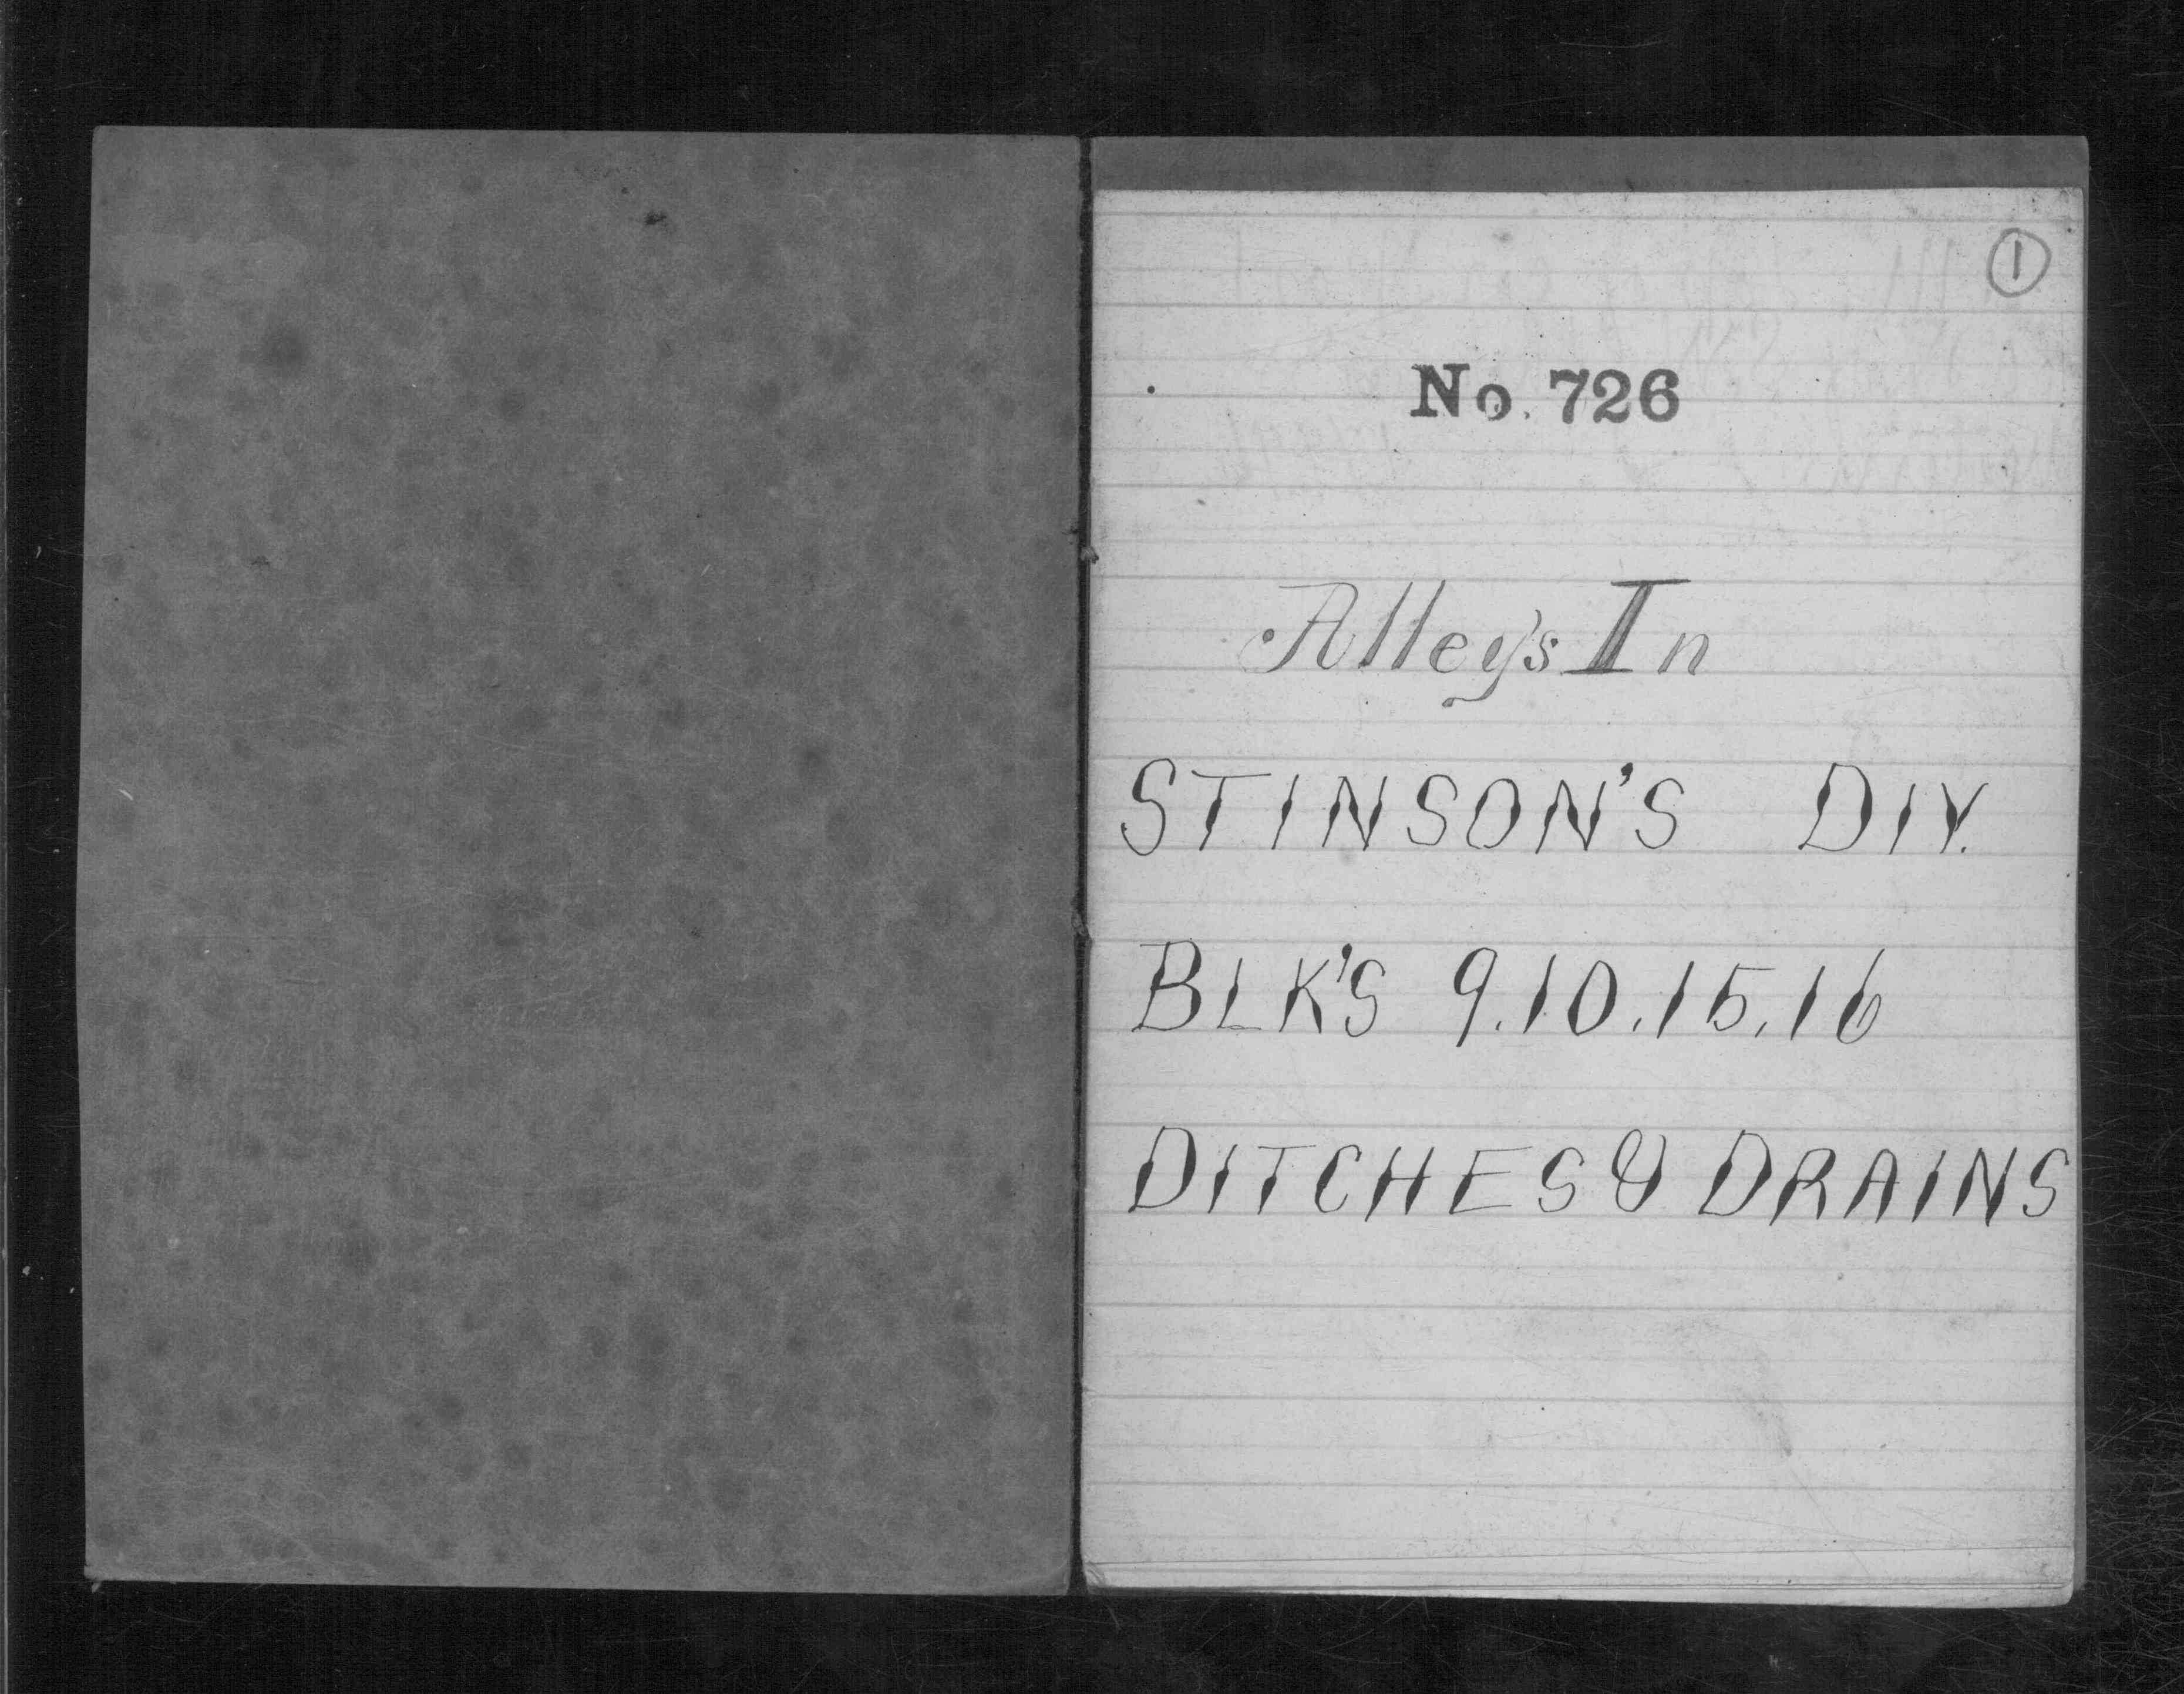 1
No. 726
Alley's In
STINSON'S DIV.
BLK'S 9.10.15.16
DITCHES & DRAINS